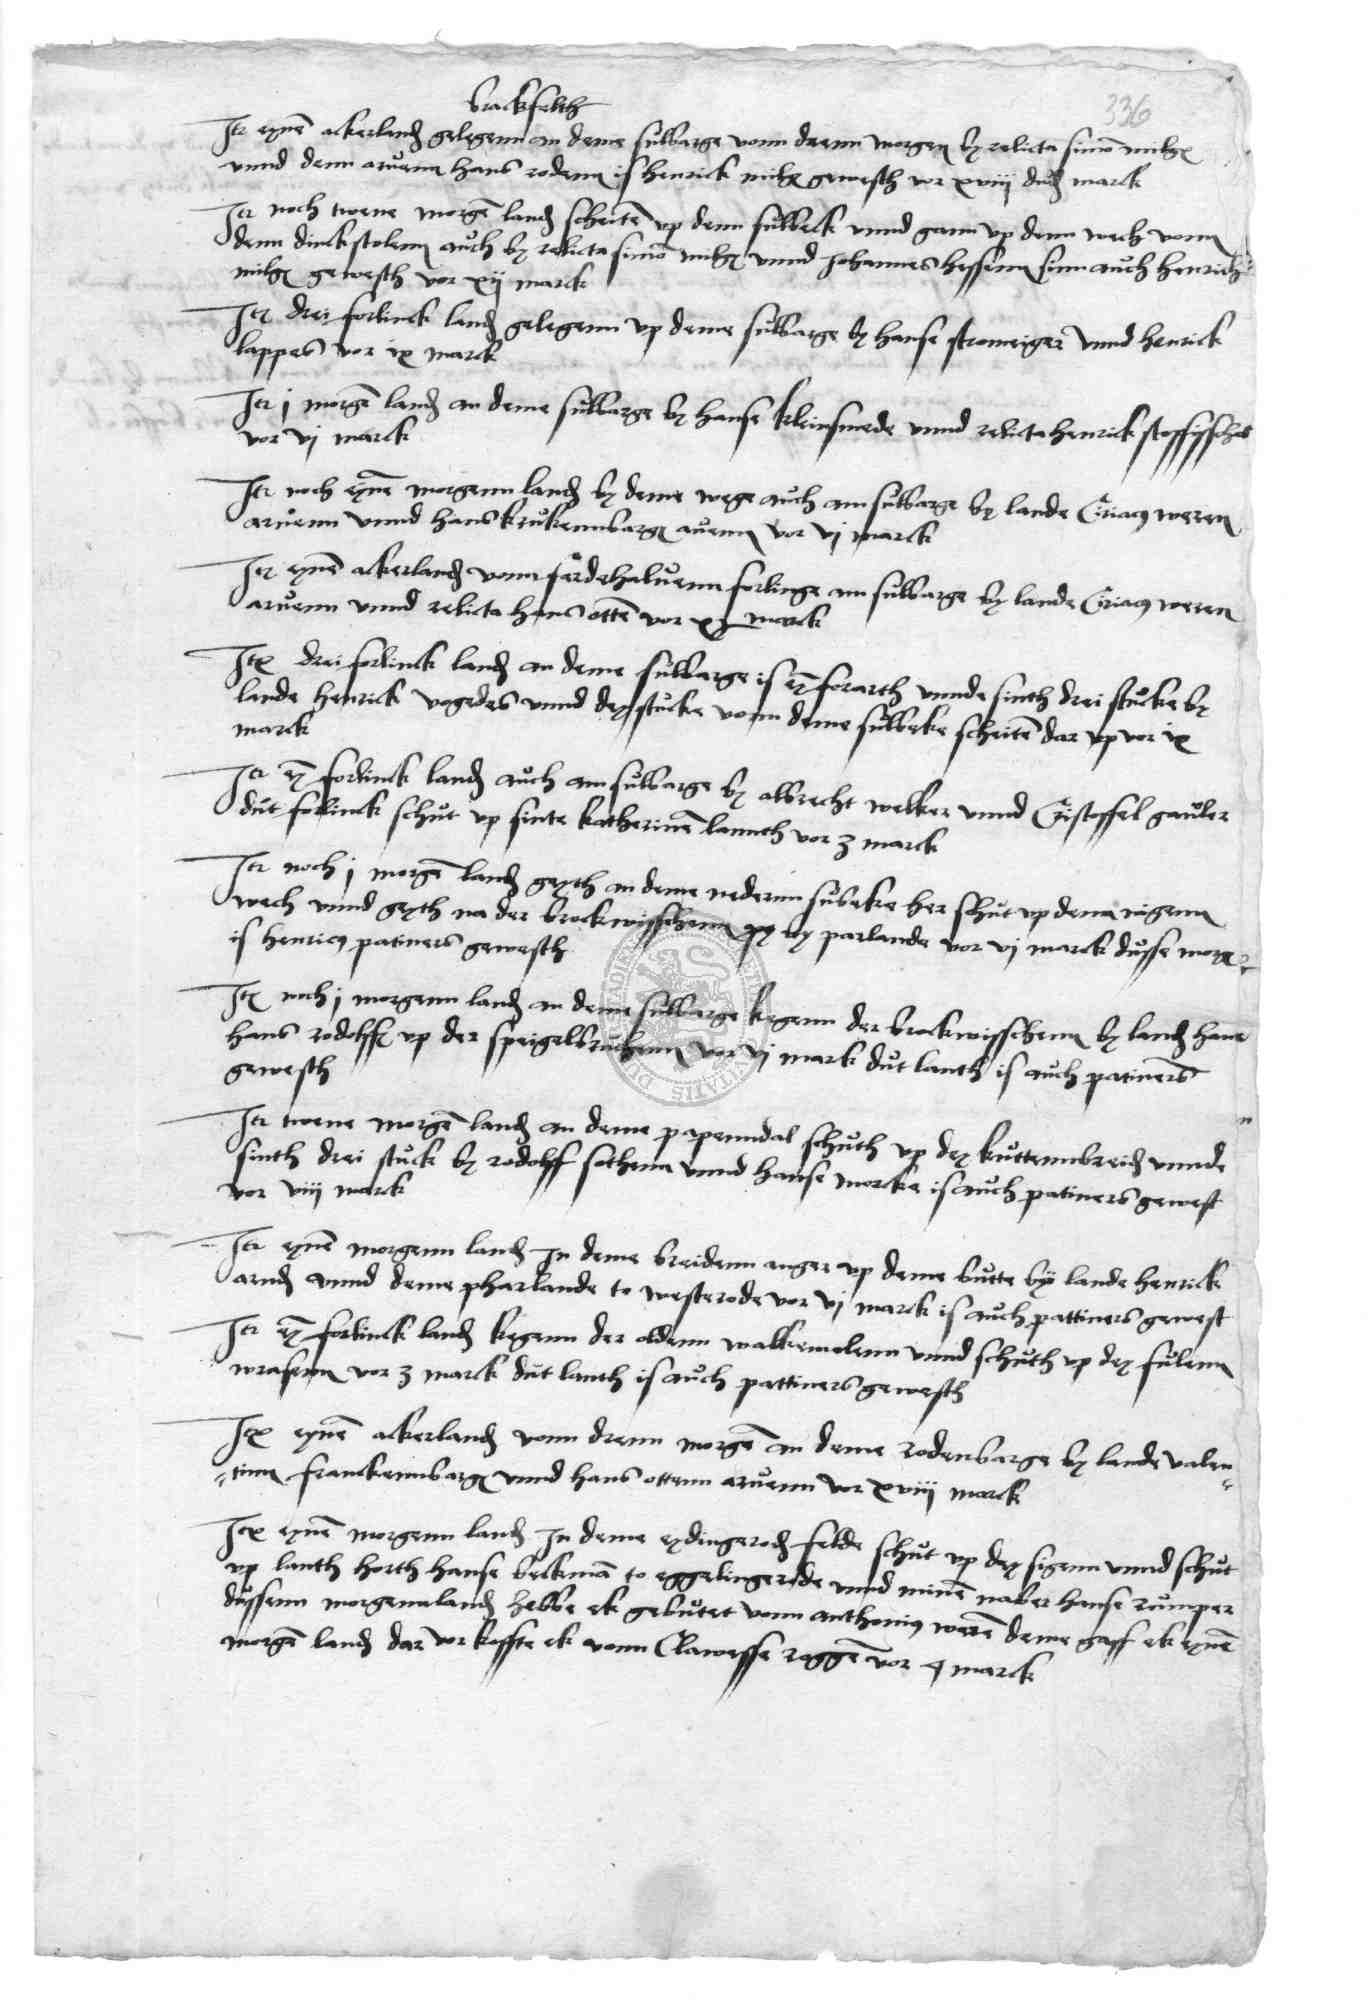 brackfelth
336
Itē eynē ackerlandꝭ gelegenn an deme sulbarge vonn drenn morgen by relicta simō
vnnd denn aruenn hans rodenn is henrick gewesth vor xviij marck
Itē noch twene morgē landꝭ scheitē vp denn sulbeck vnnd gann vp denn wech vonn
denn dinckstolenn auch by relicta simō vnnd Johannes hessenn sinn auch henrick
gewesth vor xij marck
Itē drei forlinck landꝭ gelegenn vp deme sulbarge by hanse stromeiger vnnd henrick
lappes vor ix marck
Itē j morgē landꝭ an deme sulbarge by hanse kleinsmede vnnd relicta henrick
vor vj marck
Itē noch eynē morgenn landꝭ by deme wege auch am sulbarge by lande Ciriacꝰ weren
aruenn vnnd hans krukennbargꝭ aruenn vor vj marck
Itē eynē ackerlandꝭ vonn ferdehaluenn forlinge am sulbarge by lande Ciriacꝰ weren
aruenn vnnd relicta hans ottē vor marck
Itē drei forlinck landꝭ an deme sulbarge is eyn forarth vnnde sinth drei stucke by
lande henrick vogedes vnnd dey stucke vonn deme sulbeke scheitē dar vp vor ix
marck
Itē eyn forlinck landꝭ auch am sulbarge by albrecht welker vnnd Cristoffel gauler
dut forlinck schut vp sinte katherinē lannth vor 3 marck
Itē noch j morgē landꝭ geyth an deme nedernn subeke her schut vp denn nigenn
wech vnnd geyth na der brockwisschenn by parlande vor vj marck dusse morgē
is henricꝰ patiners gewesth
Itē noch j morgenn landꝭ an deme sulbarge kegenn der brockwisschenn by landꝭ hans
hans rodolffꝭ vp der speigelbruchenn vor vj mark dut lanth is auch patiners
gewesth
Itē twene morgē landꝭ an deme papenndal schuth vp dey kuttennbreidꝭ vnnde
sinth drei stuck by rodolff sothenn vnnd hanse morcke is auch patiners gewest
vor viij marck
Itē eynē morgenn landꝭ In deme breidenn anger vp deme butte by lande henrick
arndꝭ vnnd deme pharlande to westerode vor vj marck is auch pattiners gewest
Itē eyn forlinck landꝭ kegenn der oldenn walkemolenn vnnd schuth vp dey fulenn
wrasenn vor 3 marck dut lanth is auch pattiners gewesth
Itē eynē ackerlandꝭ vonn drenn morgē an deme rodenbarge by lande valen-
tinn franckennbargꝭ vnnd hans ottenn aruenn vor xviij marck
Itē eynē morgenn landꝭ In deme eydingerodꝭ felde schut vp dey sigenn vnnd schut
vp lanth horth hanse beckmā to eggelingerode vnnd minē naber hanse rumper
dussenn morgennlandꝭ hebbe ek gebutet vonn anthoniꝰ werē deme gaff ek eynē
morgē landꝭ dar vor koffte ek vonn Clawesse roggē vor 4 marck